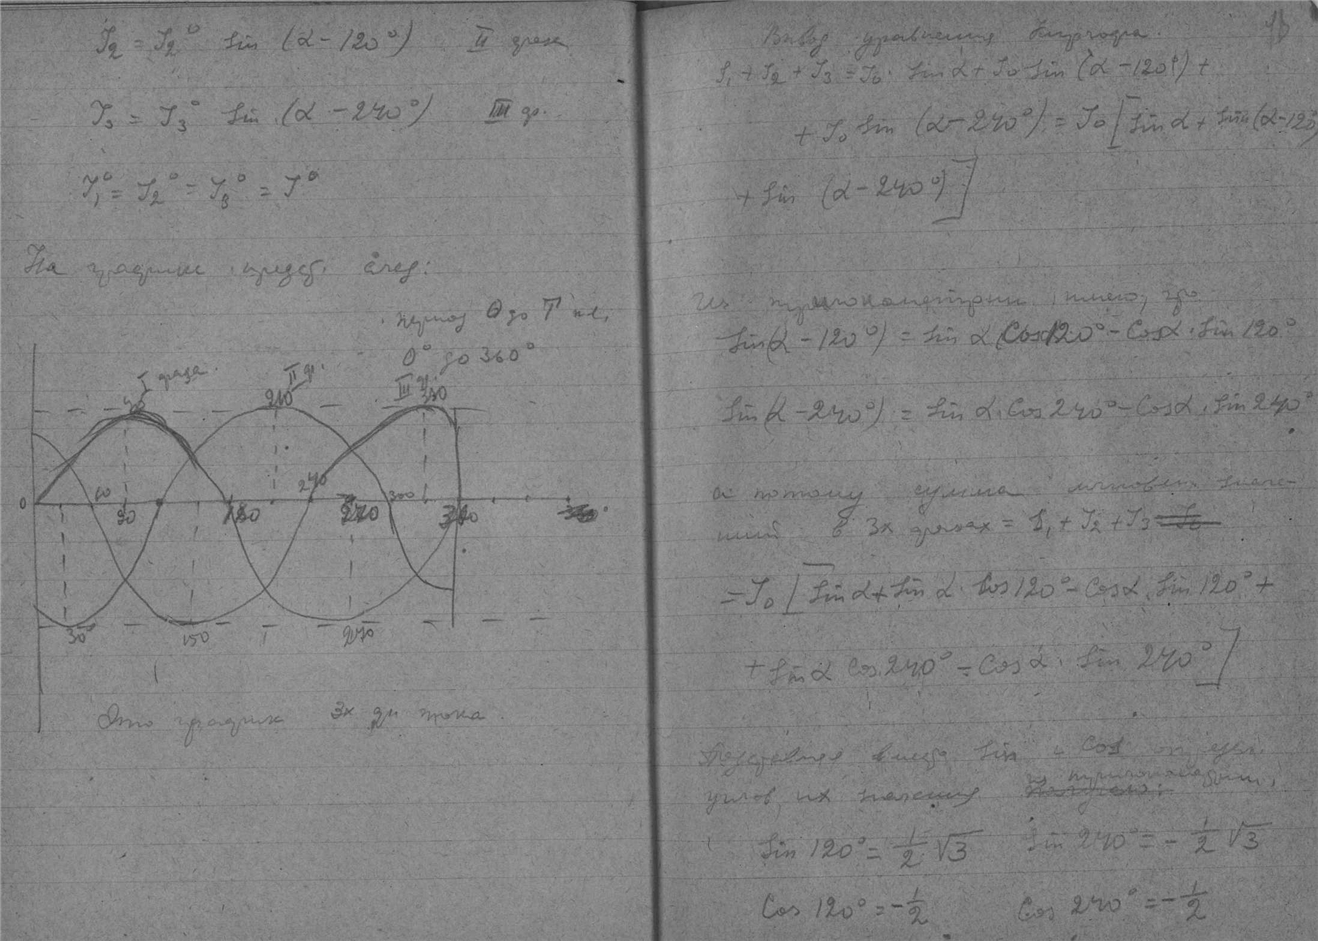 J₂ = J₂° Sin (α - 120°) II фаза
J₃ = J₃° Sin (α - 240°) III ф.
J₁° = J₂° = J₃° = J°
На графике предст. след:
период 0 до T
0° до 360°
I фаза.
II ф.
III ф.
90 210 330
0 60 90 180 240 270 300 360
30 150 270
Это график 3х ф. тока
Вывод уравнения Кирхгофа.
J₁ + J₂ + J₃ = J₀ · Sin α + J₀ Sin (α - 120°) +
+ J₀ Sin (α - 240°) = J₀ [Sin α + Sin (α - 120
+ Sin (α - 240°)]
Из тригонометрии
Sin(α - 120°) = Sin α Cos 120° - Cos α · Sin 120°
Sin(α - 240°) = Sin α · Cos 240° - Cos α · Sin 240°
а потому сумма мгновен. значе-
ний в 3х фазах = J₁ + J₂ + J₃
= J₀ [Sin α + Sin α Cos 120° - Cos α Sin 120° +
+ Sin α Cos 240° - Cos α · Sin 240°]
вместо Sin и Cos
углов их значения
Sin 120° = 1/2 √3 Sin 240° = - 1/2 √3
Cos 120° = - 1/2 Cos 240° = - 1/2